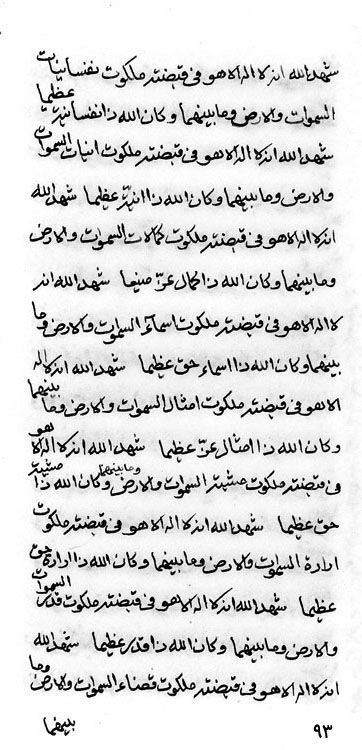 شهد الله انه لا اله الا هو فی قبضته ملکوت نفسانیات
السموات والارض وما بینهما وکان الله ذا نفسانیة عظیما
شهد الله انه لا اله الا هو فی قبضته ملکوت انیات السموات
والارض وما بینهما وکان الله ذا انیة عظیما شهد الله
انه لا اله الا هو فی قبضته ملکوت کمالات السموات والارض
وما بینهما وکان الله ذا کمال عز منیعا شهد الله انه
لا اله الا هو فی قبضته ملکوت اسماء السموات والارض وما
بینهما وکان الله ذا اسماء حق عظیما شهد الله انه لا اله
الا هو فی قبضته ملکوت امثال السموات والارض وما بینهما
وکان الله ذا امثال عز عظیما شهد الله انه لا اله الا هو
فی قبضته ملکوت مشیة السموات والارض وما بینهما وکان الله ذا مشیة
حق عظیما شهد الله انه لا اله الا هو فی قبضته ملکوت
ارادة السموات والارض وما بینهما وکان الله ذا ارادة حق
عظیما شهد الله انه لا اله الا هو فی قبضته ملکوت قدر السموات
والارض وما بینهما وکان الله ذا قدر عظیما شهد الله
انه لا اله الا هو فی قبضته ملکوت قضاء السموات والارض وما
بینهما
۹۳